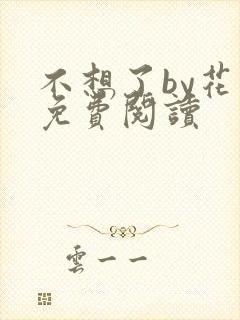 不想了by花
免費閱讀
雲一一